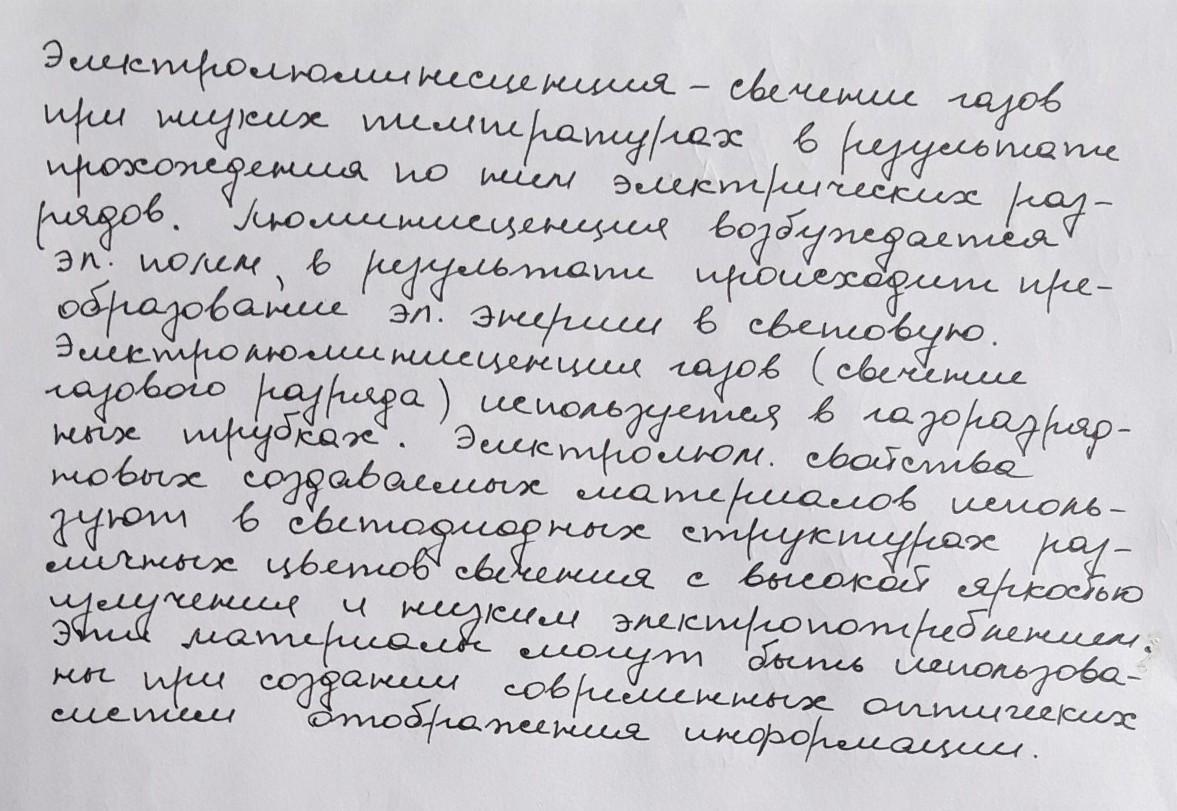 Электролюминесценция – свечение газов
при низких температурах в результате
прохождения по ним электрических раз-
рядов. Люминисценция возбуждается
эл. полем, в результате происходит пре-
образование эл. энергии в световую.
Электролюминисценция газов (свечение
газового разряда) используется в газоразряд-
ных трубках. Электролюм. свойства
новых создаваемых материалов исполь-
зуют в светодиодных структурах раз-
личных цветов свечения с высокой яркостью
излучения и низким электропотреблением.
Эти материалы могут быть использова-
ны при создании современных оптических
систем отображения информации.